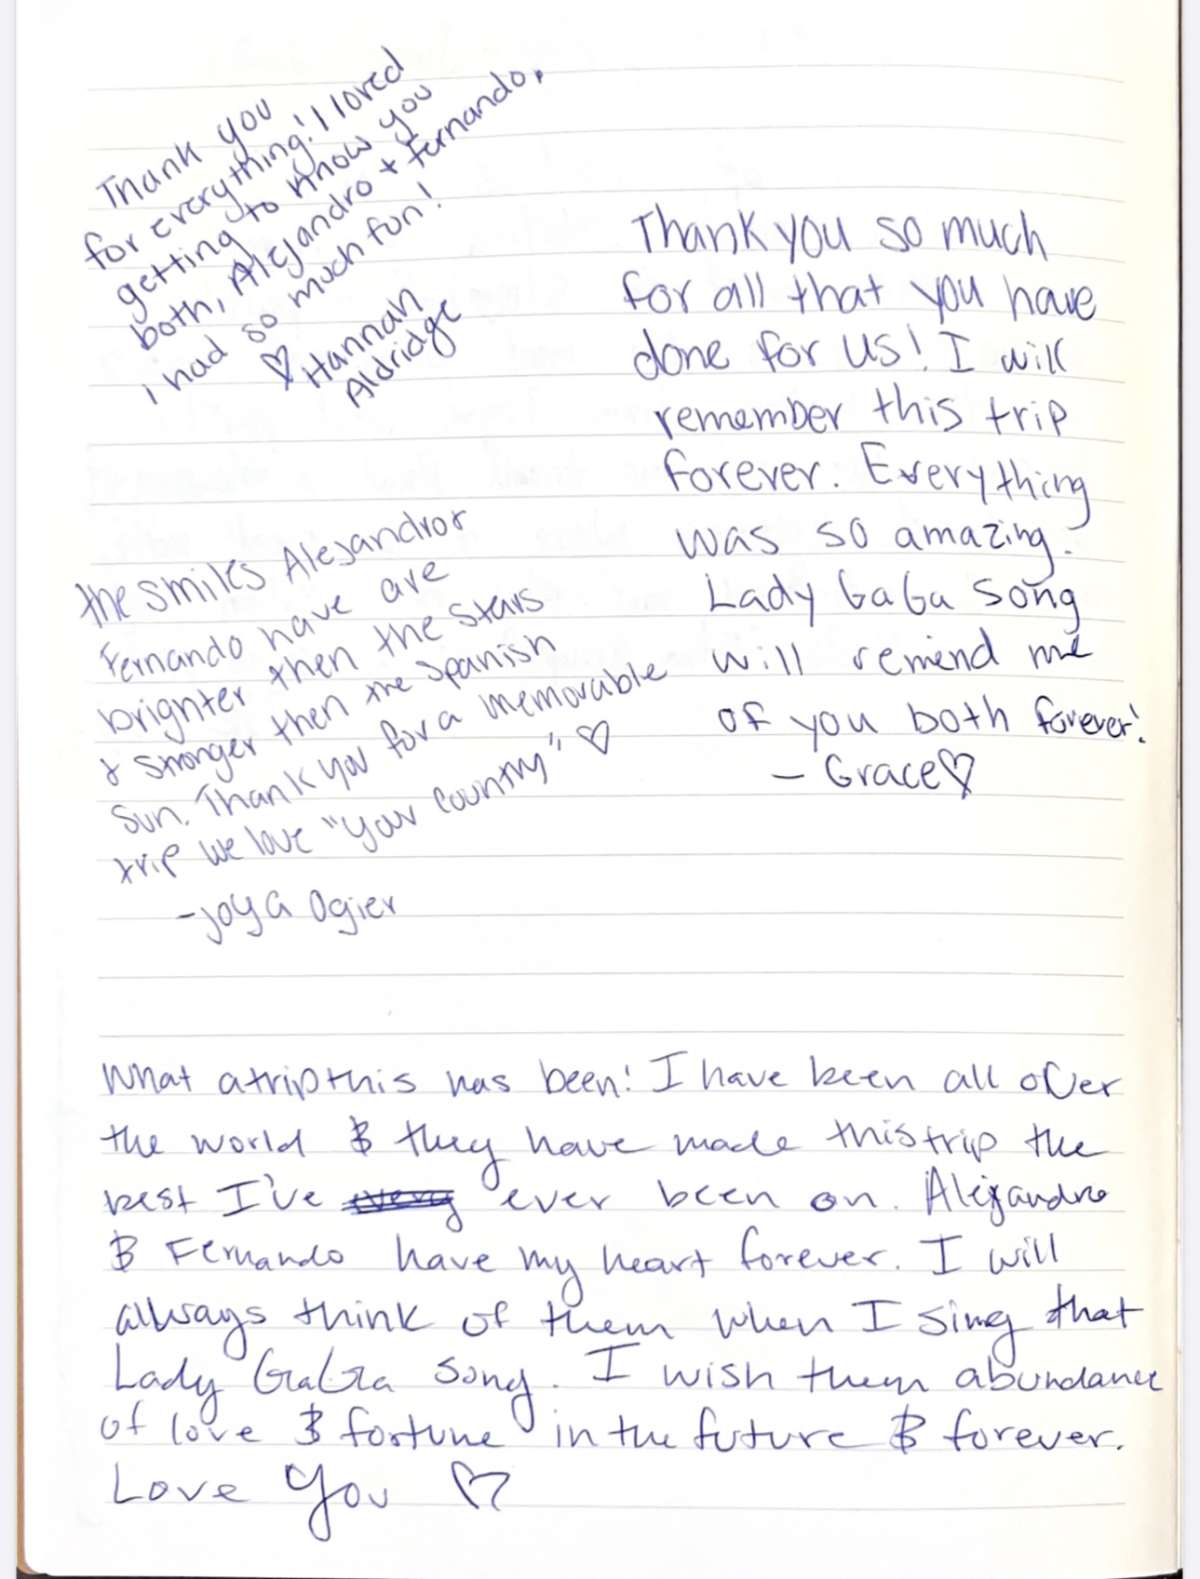 Thank you
for everything! I loved
getting to know you
both, Alejandro + Fernando,
I had so much fun!
♡ Hannah
Aldridge
Thank you so much
for all that you have
done for us! I will
remember this trip
forever. Everything
was so amazing.
Lady GaGa song
will remind me
of you both forever!
- Grace♡
the smiles Alejandro &
Fernando have are
brighter then the stars
& stronger then the Spanish
Sun. Thank you for a memorable
trip we love "your country" ♡
-Joya Ogier
What a trip this has been! I have been all over
the world & they have made this trip the
best I've ever been on. Alejandro
& Fernando have my heart forever. I will
always think of them when I sing that
Lady GaGa song. I wish them abundance
of love & fortune in the future & forever.
Love You ♡